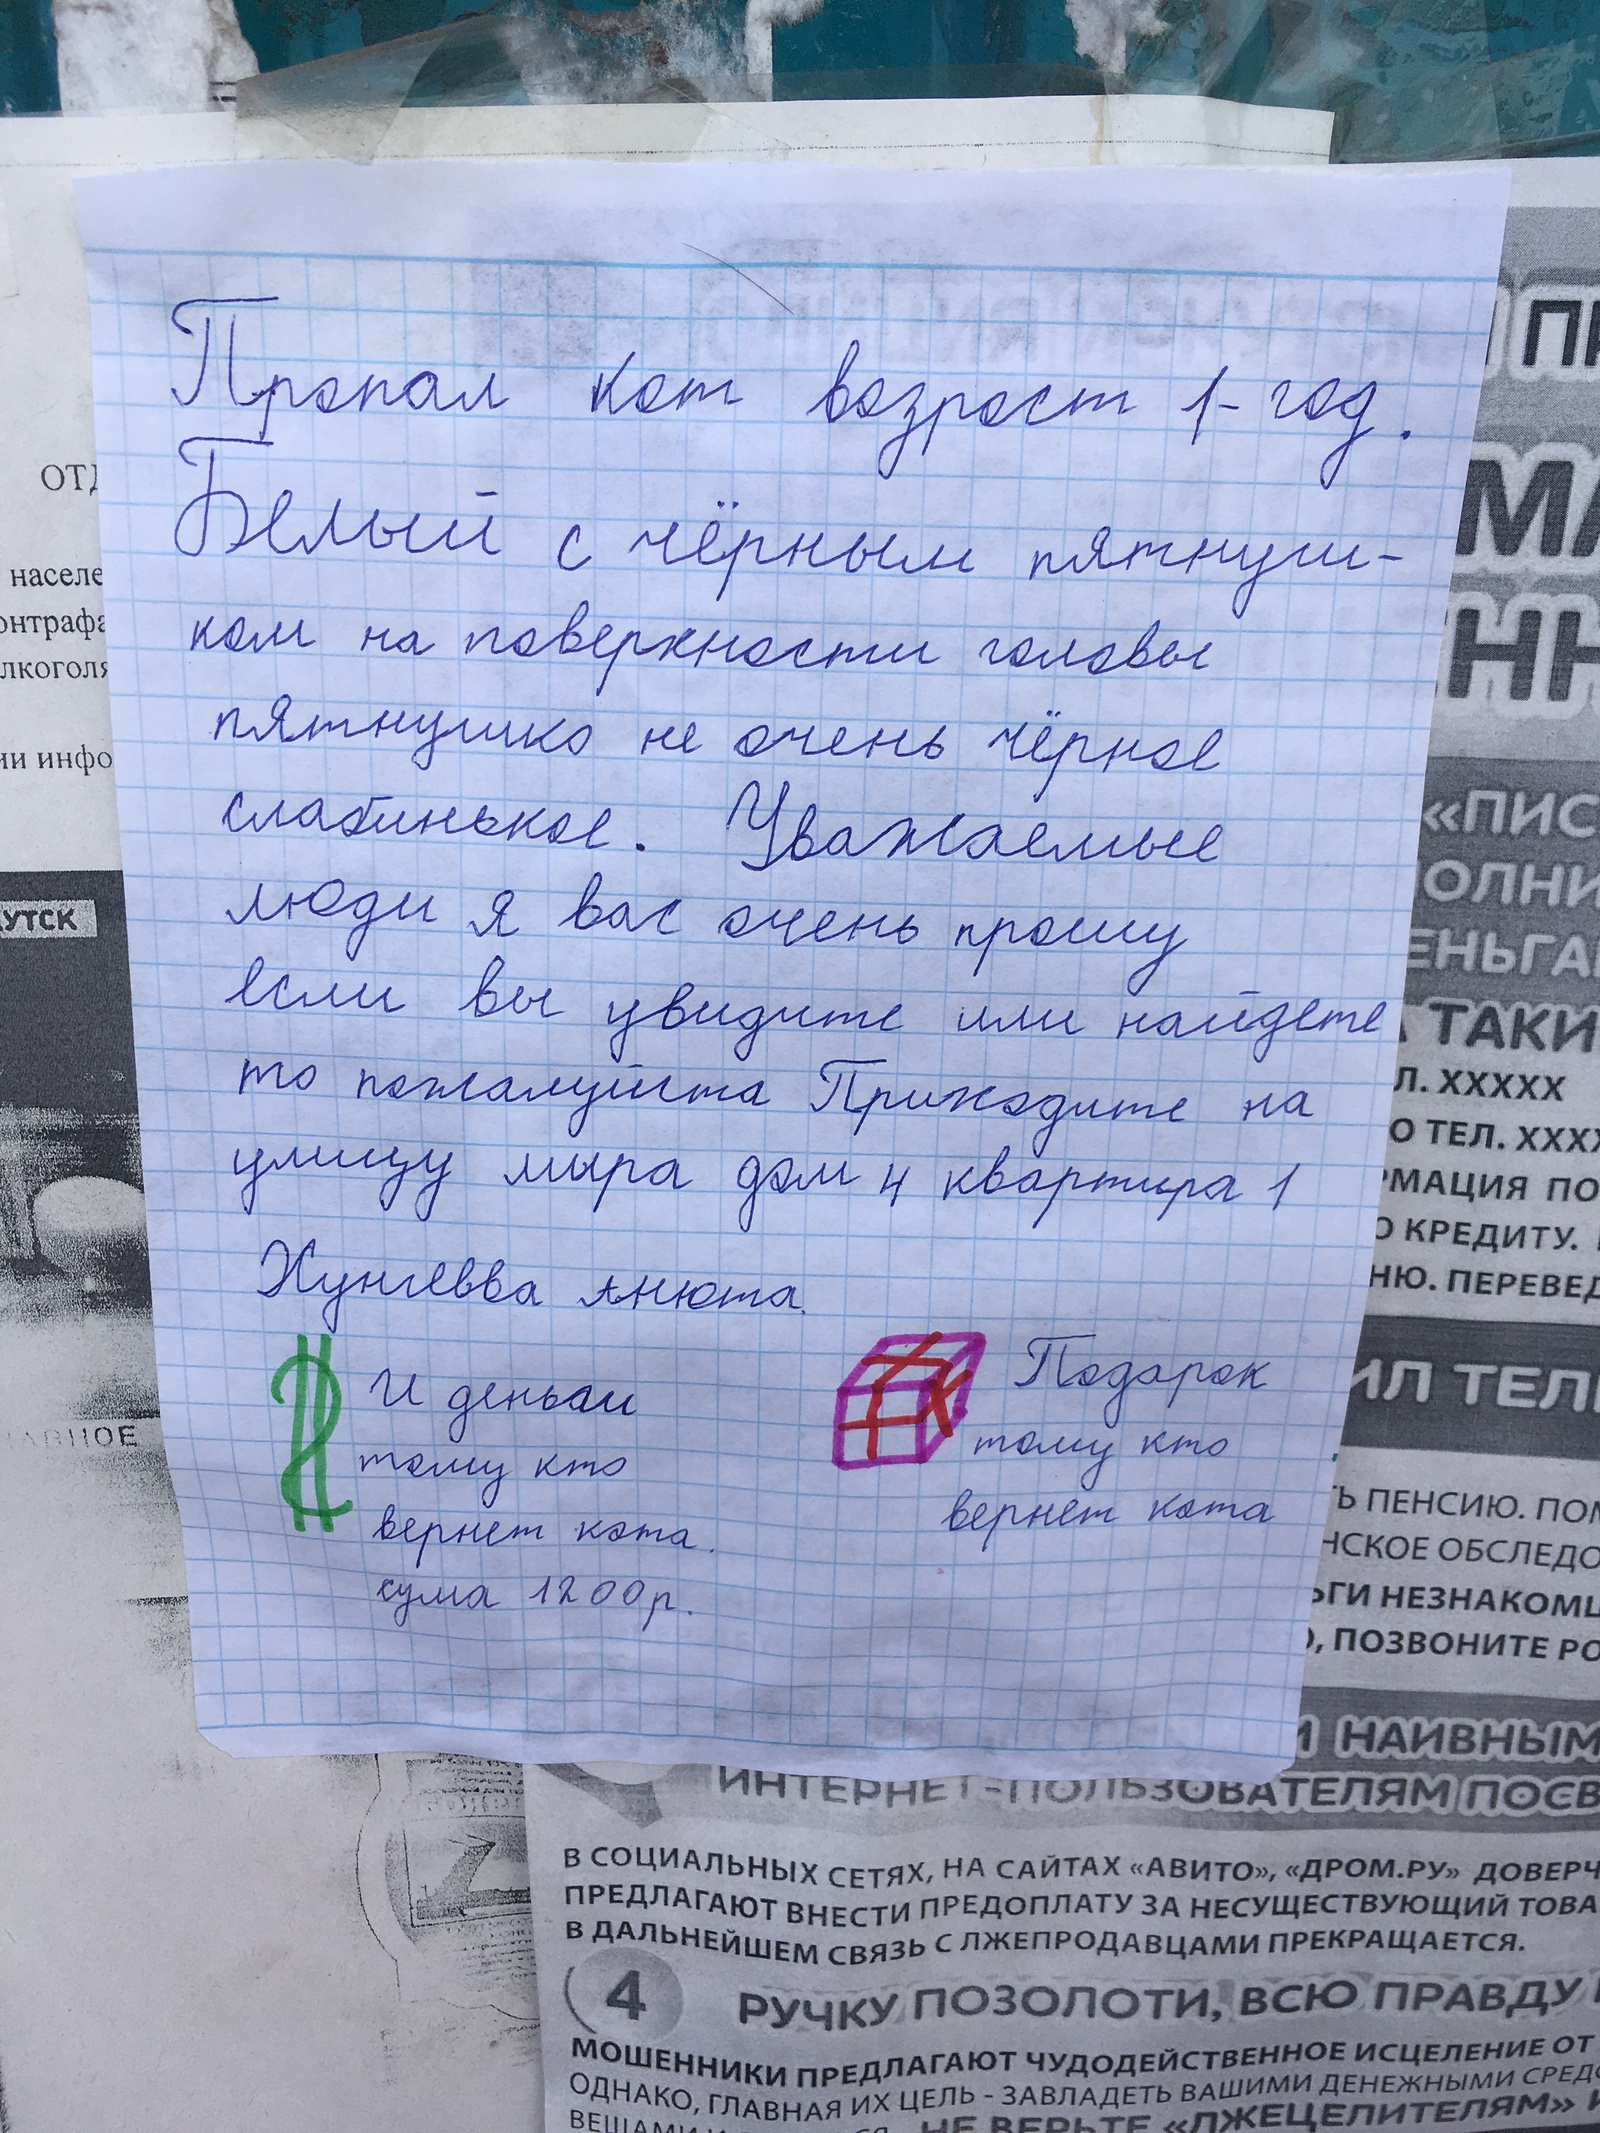 Пропал кот возрост 1-год.
Белый с чёрным пятнуш-
ком на поверхности головы
пятнушко не очень чёрное
слабинькое. Уважаемые
люди я вас очень прошу
если вы увидите или найдете
то пожалуйста Приходите на
улицу мира дом 4 квартира 1
анюта.
И деньги
тому кто
вернет кота.
сума 1200р.
Подарок
тому кто
вернет кота
ОТД
населе
онтрафа
лкоголя
ии инфо
УТСК
АВНОЕ
ПР
МА
НН
«ПИС
ОЛНИ
ЕНЬГА
ТАКИ
Л. ХХХХХ
О ТЕЛ. ХХХХ
РМАЦИЯ ПО
О КРЕДИТУ.
НЮ. ПЕРЕВЕД
ИЛ ТЕЛ
ТЬ ПЕНСИЮ. ПОМ
НСКОЕ ОБСЛЕДО
ЬГИ НЕЗНАКОМЦ
, ПОЗВОНИТЕ РО
И НАИВНЫМ
ИНТЕРНЕТ-ПОЛЬЗОВАТЕЛЯМ ПОСВ
В СОЦИАЛЬНЫХ СЕТЯХ, НА САЙТАХ «АВИТО», «ДРОМ.РУ» ДОВЕРЧ
ПРЕДЛАГАЮТ ВНЕСТИ ПРЕДОПЛАТУ ЗА НЕСУЩЕСТВУЮЩИЙ ТОВА
В ДАЛЬНЕЙШЕМ СВЯЗЬ С ЛЖЕПРОДАВЦАМИ ПРЕКРАЩАЕТСЯ.
4 РУЧКУ ПОЗОЛОТИ, ВСЮ ПРАВДУ
МОШЕННИКИ ПРЕДЛАГАЮТ ЧУДОДЕЙСТВЕННОЕ ИСЦЕЛЕНИЕ ОТ
ОДНАКО, ГЛАВНАЯ ИХ ЦЕЛЬ - ЗАВЛАДЕТЬ ВАШИМИ ДЕНЕЖНЫМИ СРЕДС
НЕ ВЕРЬТЕ «ЛЖЕЦЕЛИТЕЛЯМ»